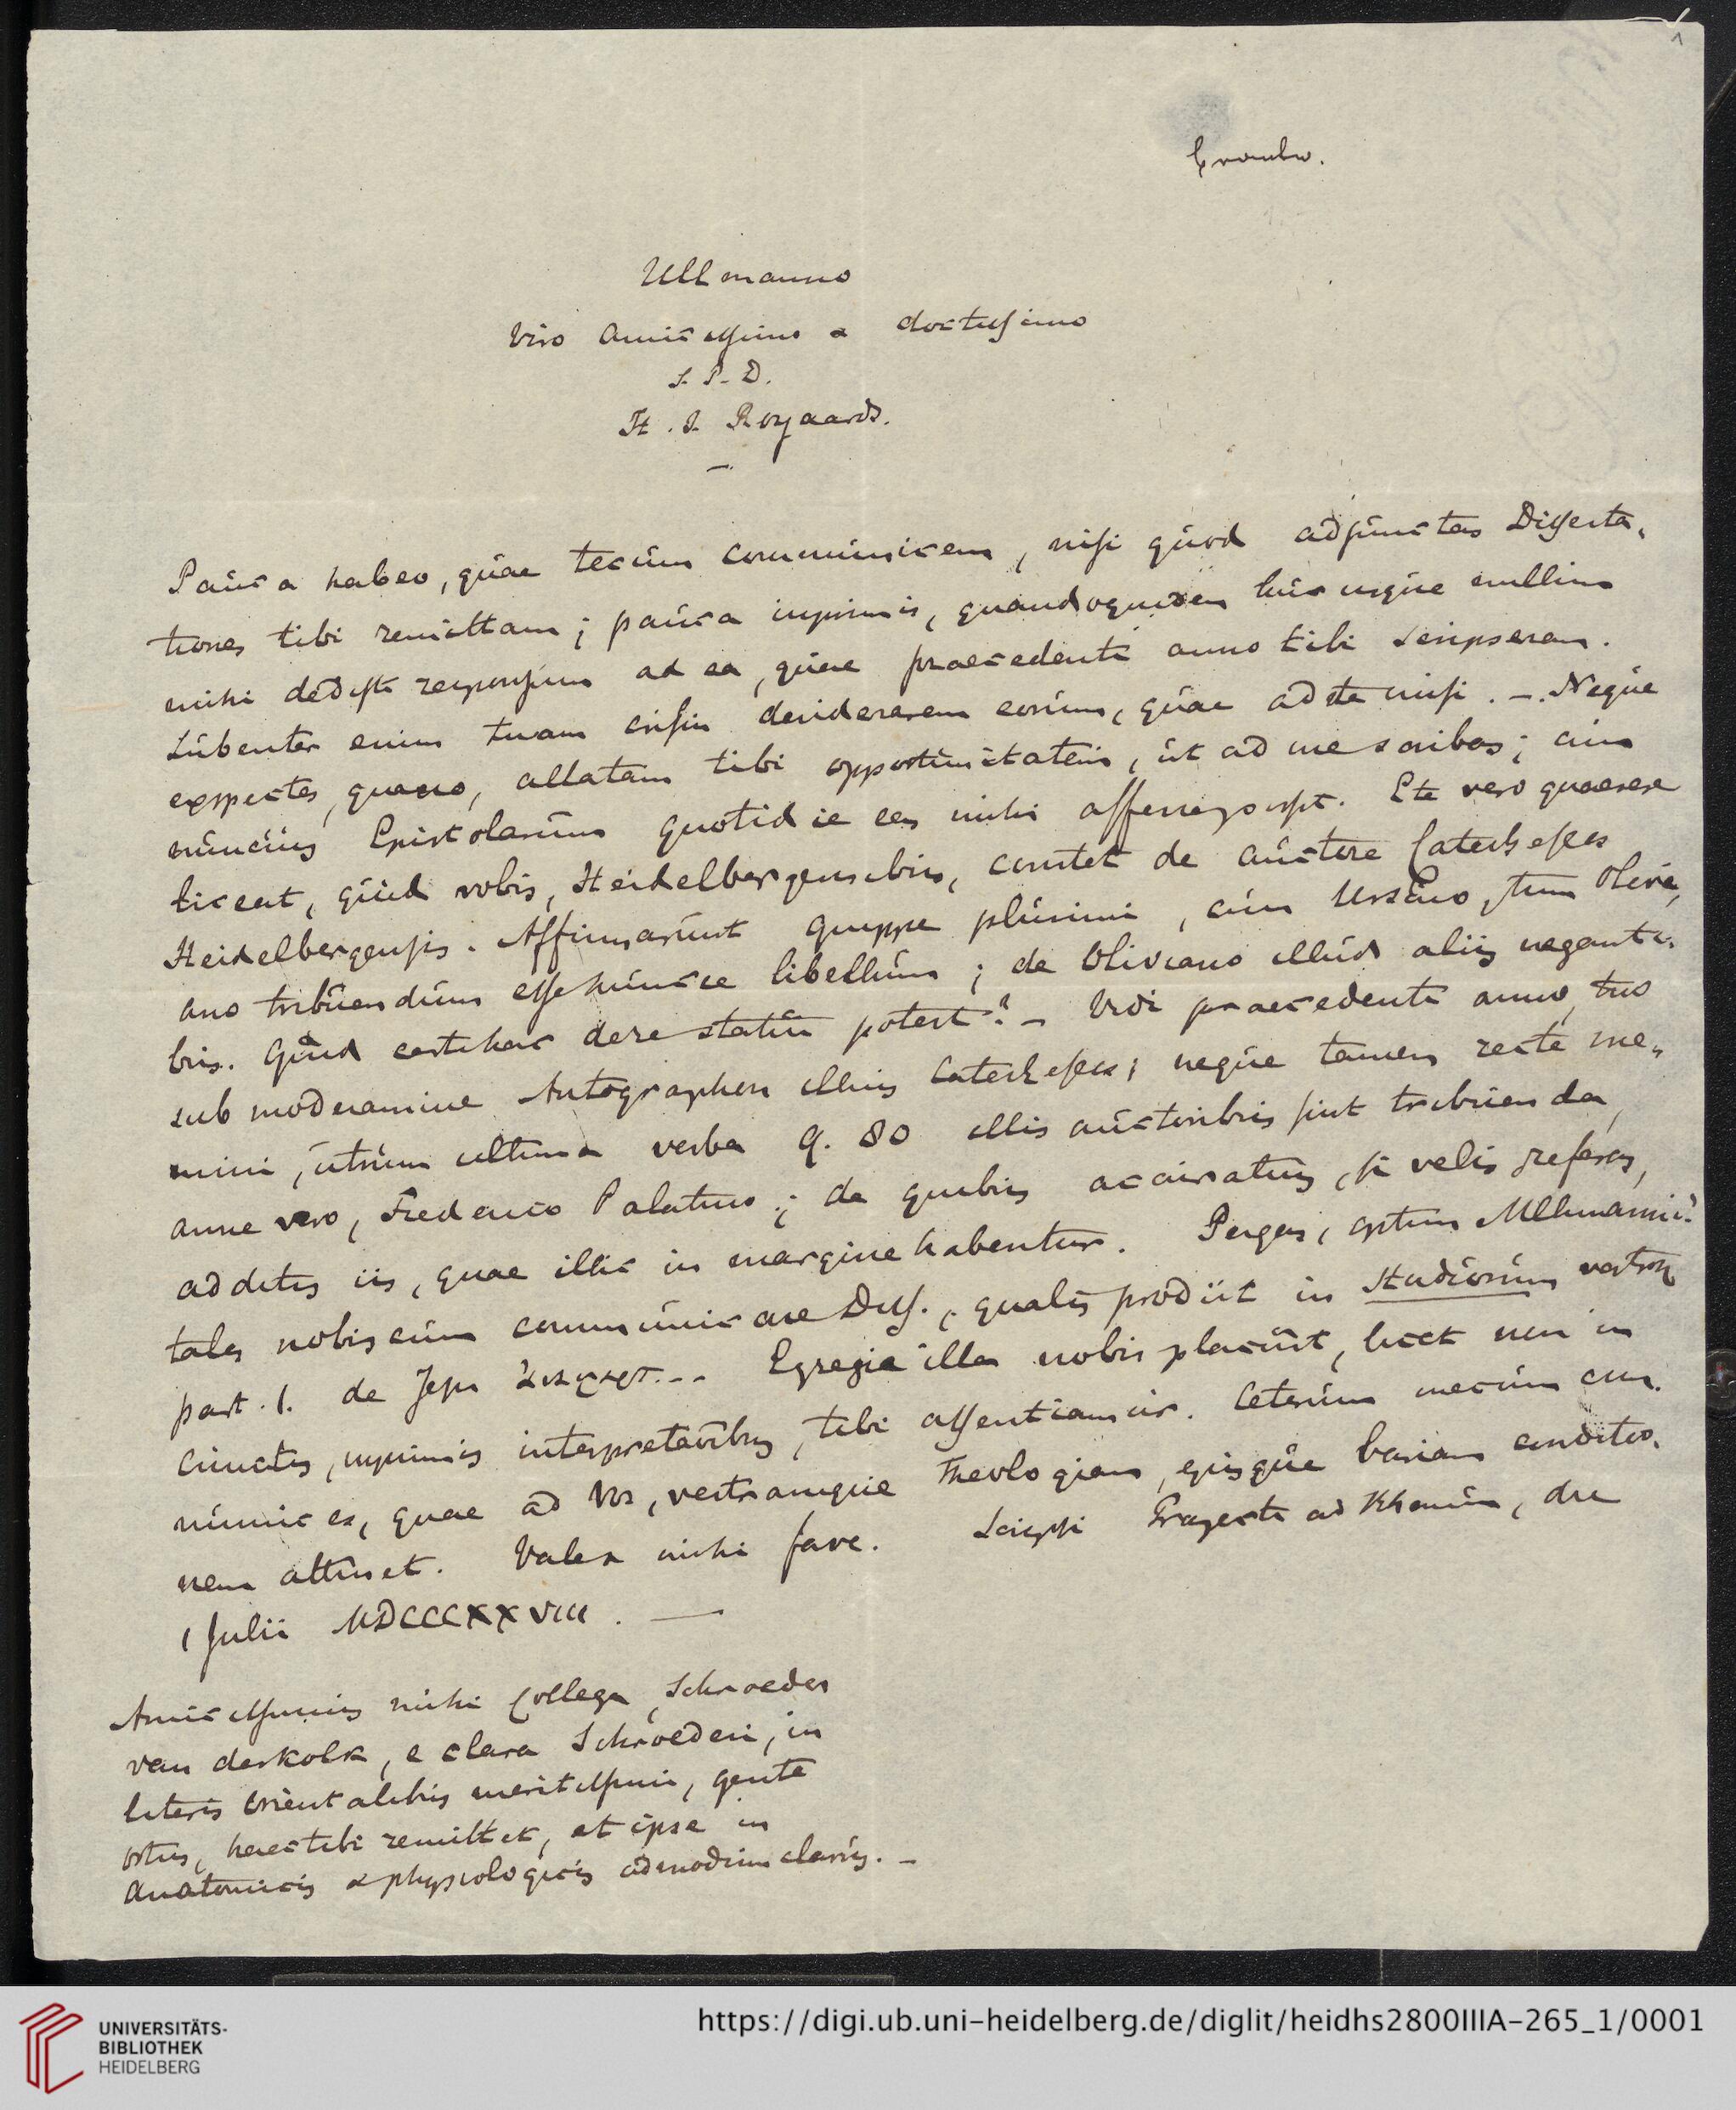 Ullmanno
Viro Amicissimo & doctissimo
S. P. D.
H. J. Royaards.
Pauca habeo, quae tecum communicem, nisi quod adjunctas Disserta-
tiones tibi remittam; pauca inprimis, quandoquidem huc usque nullum
mihi dedisti responsum ad ea, quae praecedenti anno tibi scripseram.
Lubenter enim tuam crisin desiderarem eorum, quae ad te misi. – Neque
exspectes, quaeso, allatam tibi opportunitatem, ut ad me scribas; cum
nuncius Epistolarum quotidie eas mihi afferre possit. Ete vero quaerere
liceat, quid vobis, Heidelbergensibus, constet de auctore Catecheseos
Heidelbergensis. Affirmarunt quippe plurimi, cum Ursino, tum Olivi-
ano tribuendum esse huncce libellum; de Oliviano illud aliis neganti-
bus. Quid certi hac de re statui potest? – Vidi praecedenti anno, tuo
sub moderamine Autographon illius Catecheseos; neque tamen recte me-
mini, utrum ultima verba q. 80 illis auctoribus sint tribuenda,
anne vero, Frederico Palatino; de quibus accuratius, si velis, referas,
additis iis, quae illic in margine habentur. Pergas, optime Ullmanni!
tales nobiscum communicare Diss., qualis prodiit in Studiorum vestror.
part. 1. de Jesu ... Egregie illa nobis placuit, licet non in
cunctis, inprimis interpretationibus, tibi assentiamur. Ceterum mecum com-
munices, quae ad Vos, vestramque Theologiam, ejusque variam conditio-
nem attinet. Vale & mihi fave. Scripsi Trajecti ad Rhenum, die
1 Julii MDCCCXXVIII. —
Amicissimus mihi Collega, Schroeder
van der Kolk, e clara Schroederi, in
literis Orientalibus meritissimi, gente
ortus, haec tibi remittet, et ipse in
Anatomicis & physiologicis admodum clarus. –
UNIVERSITÄTS-
BIBLIOTHEK
HEIDELBERG
https://digi.ub.uni-heidelberg.de/diglit/heidhs2800IIIA-265_1/0001